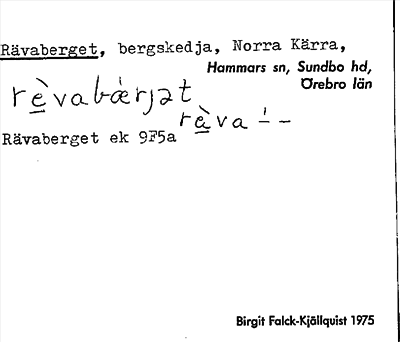 Rävaberget, bergskedja, Norra Kärra,
Hammars sn, Sundbo hd,
Örebro län
rè̲vabǽrjət
rà̲va –́ –
Rävaberget ek 9F5a
Birgit Falck-Kjällquist 1975